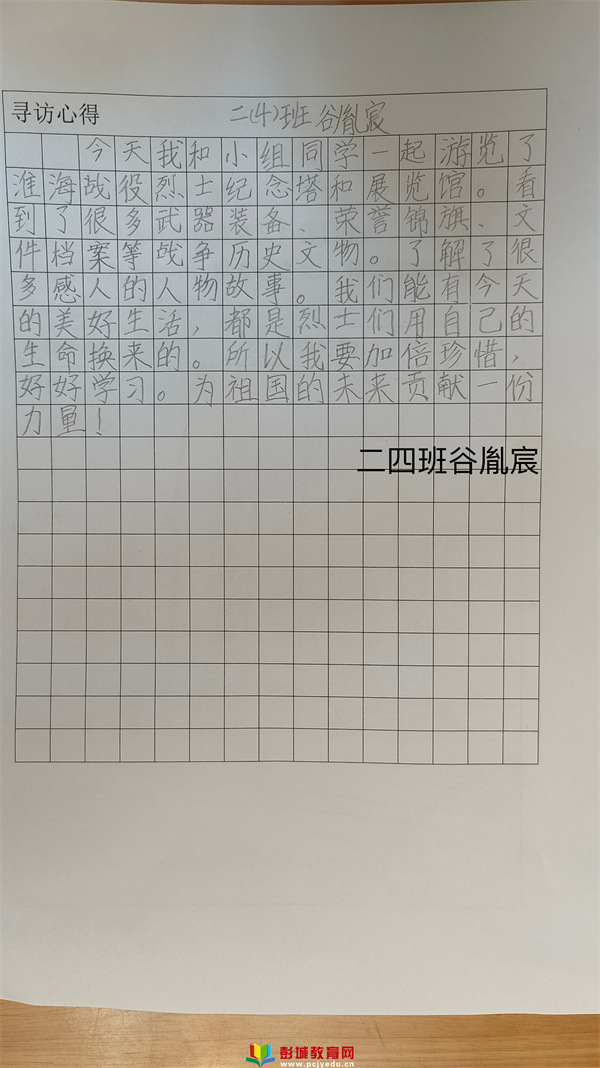 寻访心得 二(4)班 谷胤宸
今天我和小组同学一起游览了
淮海战役烈士纪念塔和展览馆。看
到了很多武器装备、荣誉锦旗、文
件档案等战争历史文物。了解了很
多感人的人物故事。我们能有今天
的美好生活，都是烈士们用自己的
生命换来的。所以我要加倍珍惜，
好好学习。为祖国的未来贡献一份
力量！
二四班谷胤宸
彭城教育网
www.pcjyedu.cn